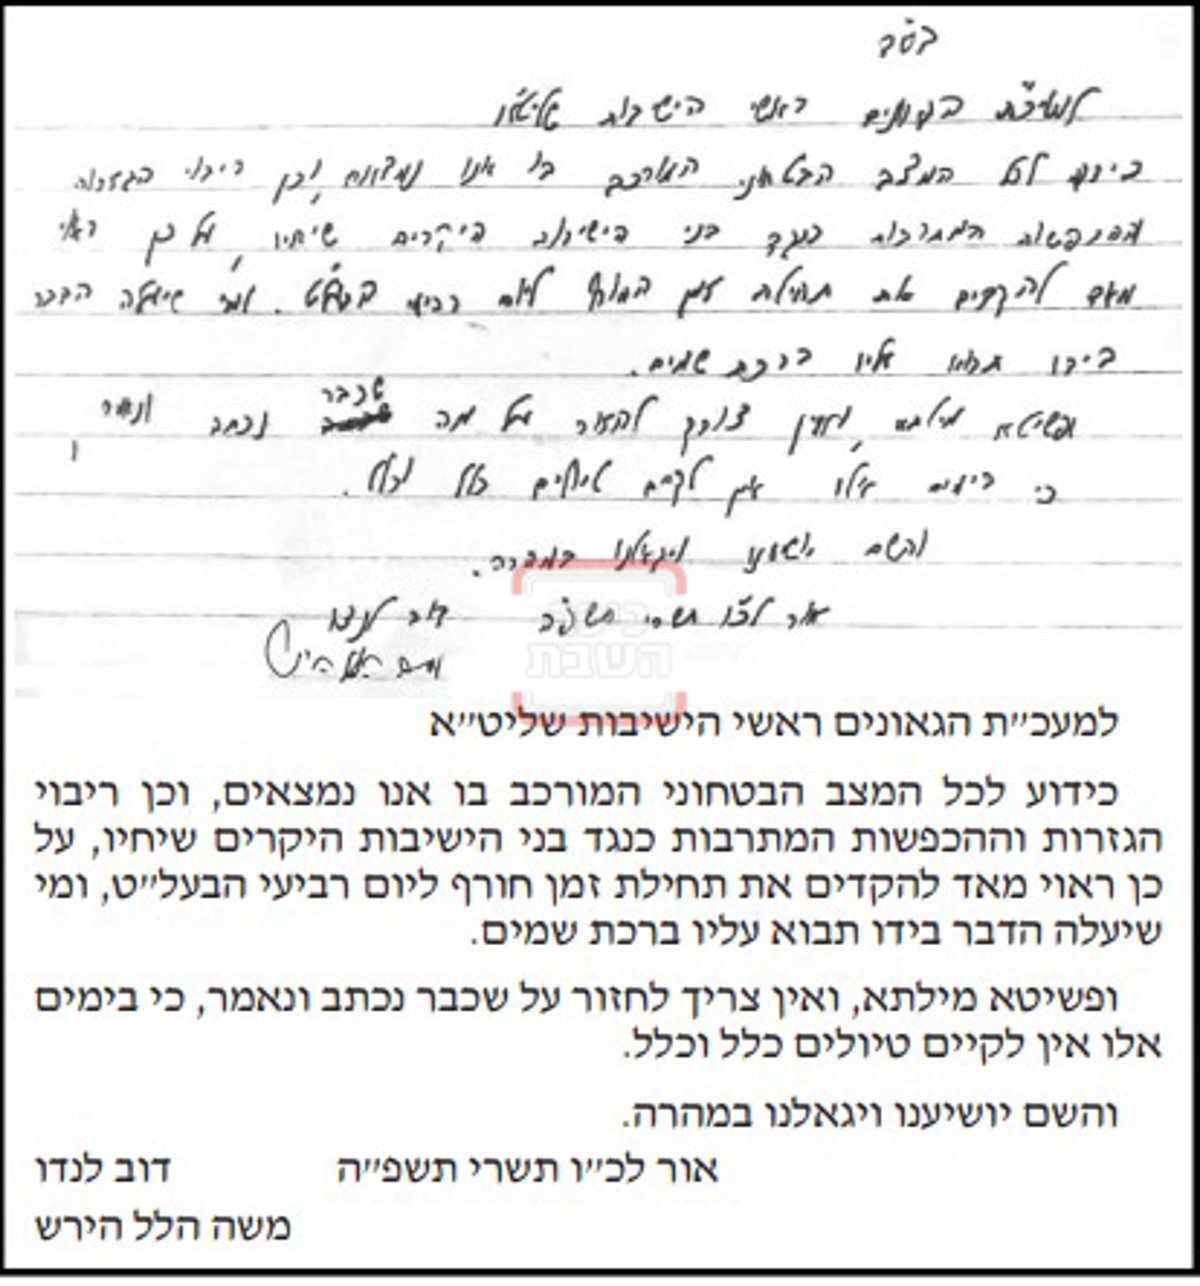 בס״ד
למעכ״ת הגאונים ראשי הישיבות שליט״א
כידוע לכל המצב הבטחוני המורכב בו אנו נמצאים, וכן ריבוי הגזרות
וההכפשות המתרבות כנגד בני הישיבות היקרים שיחיו, על כן ראוי
מאד להקדים את תחילת זמן החורף ליום רביעי הבעל״ט. ומי שיעלה הדבר
בידו תבוא עליו ברכת שמים.
ופשיטא מילתא, ואין צורך לחזור על מה שכבר נכתב ונאמר
כי בימים אלו אין לקיים טיולים כלל וכלל.
והשם יושיענו ויגאלנו במהרה.
אור לכ״ו תשרי תשפ״ה דוב לנדו
משה הלל הירש
כיכר
השבת
למעכ״ת הגאונים ראשי הישיבות שליט״א
כידוע לכל המצב הבטחוני המורכב בו אנו נמצאים, וכן ריבוי
הגזרות וההכפשות המתרבות כנגד בני הישיבות היקרים שיחיו, על
כן ראוי מאד להקדים את תחילת זמן חורף ליום רביעי הבעל״ט, ומי
שיעלה הדבר בידו תבוא עליו ברכת שמים.
ופשיטא מילתא, ואין צריך לחזור על שכבר נכתב ונאמר, כי בימים
אלו אין לקיים טיולים כלל וכלל.
והשם יושיענו ויגאלנו במהרה.
אור לכ״ו תשרי תשפ״ה דוב לנדו
משה הלל הירש